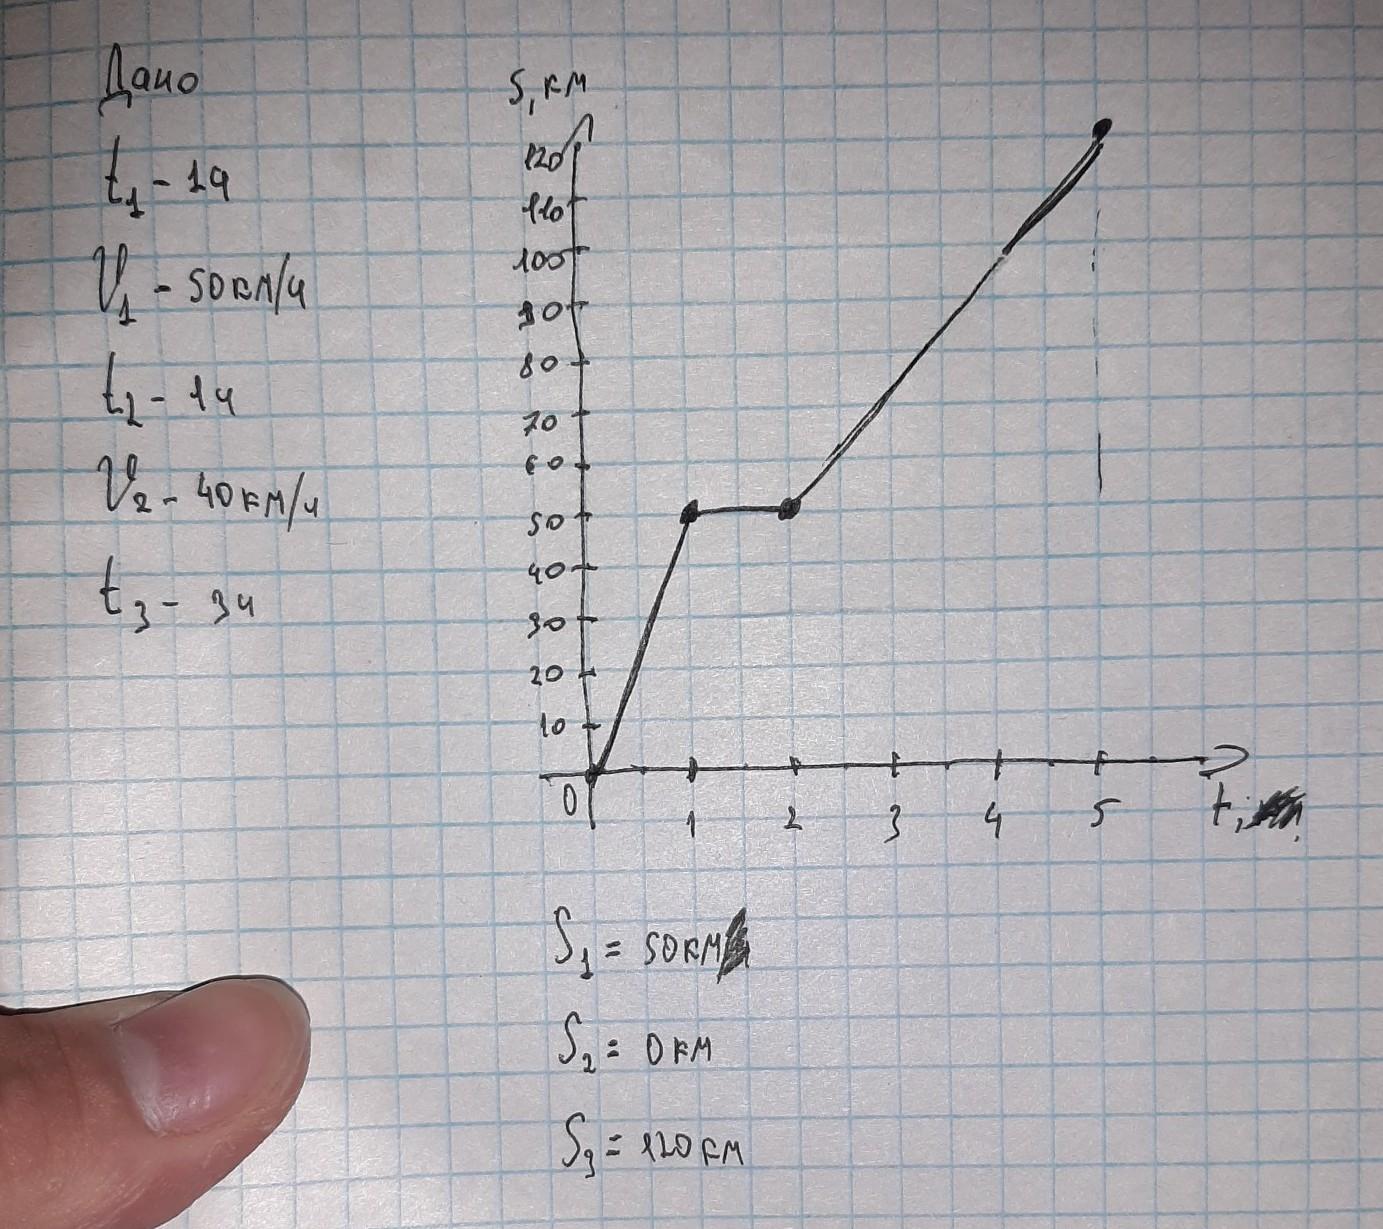 Дано
t1 - 1ч
V1 - 50км/ч
t2 - 1ч
V2 - 40км/ч
t3 - 3ч
S, км
120
110
100
90
80
70
60
50
40
30
20
10
0
1 2 3 4 5 t,
S1 = 50км
S2 = 0км
S3 = 120км